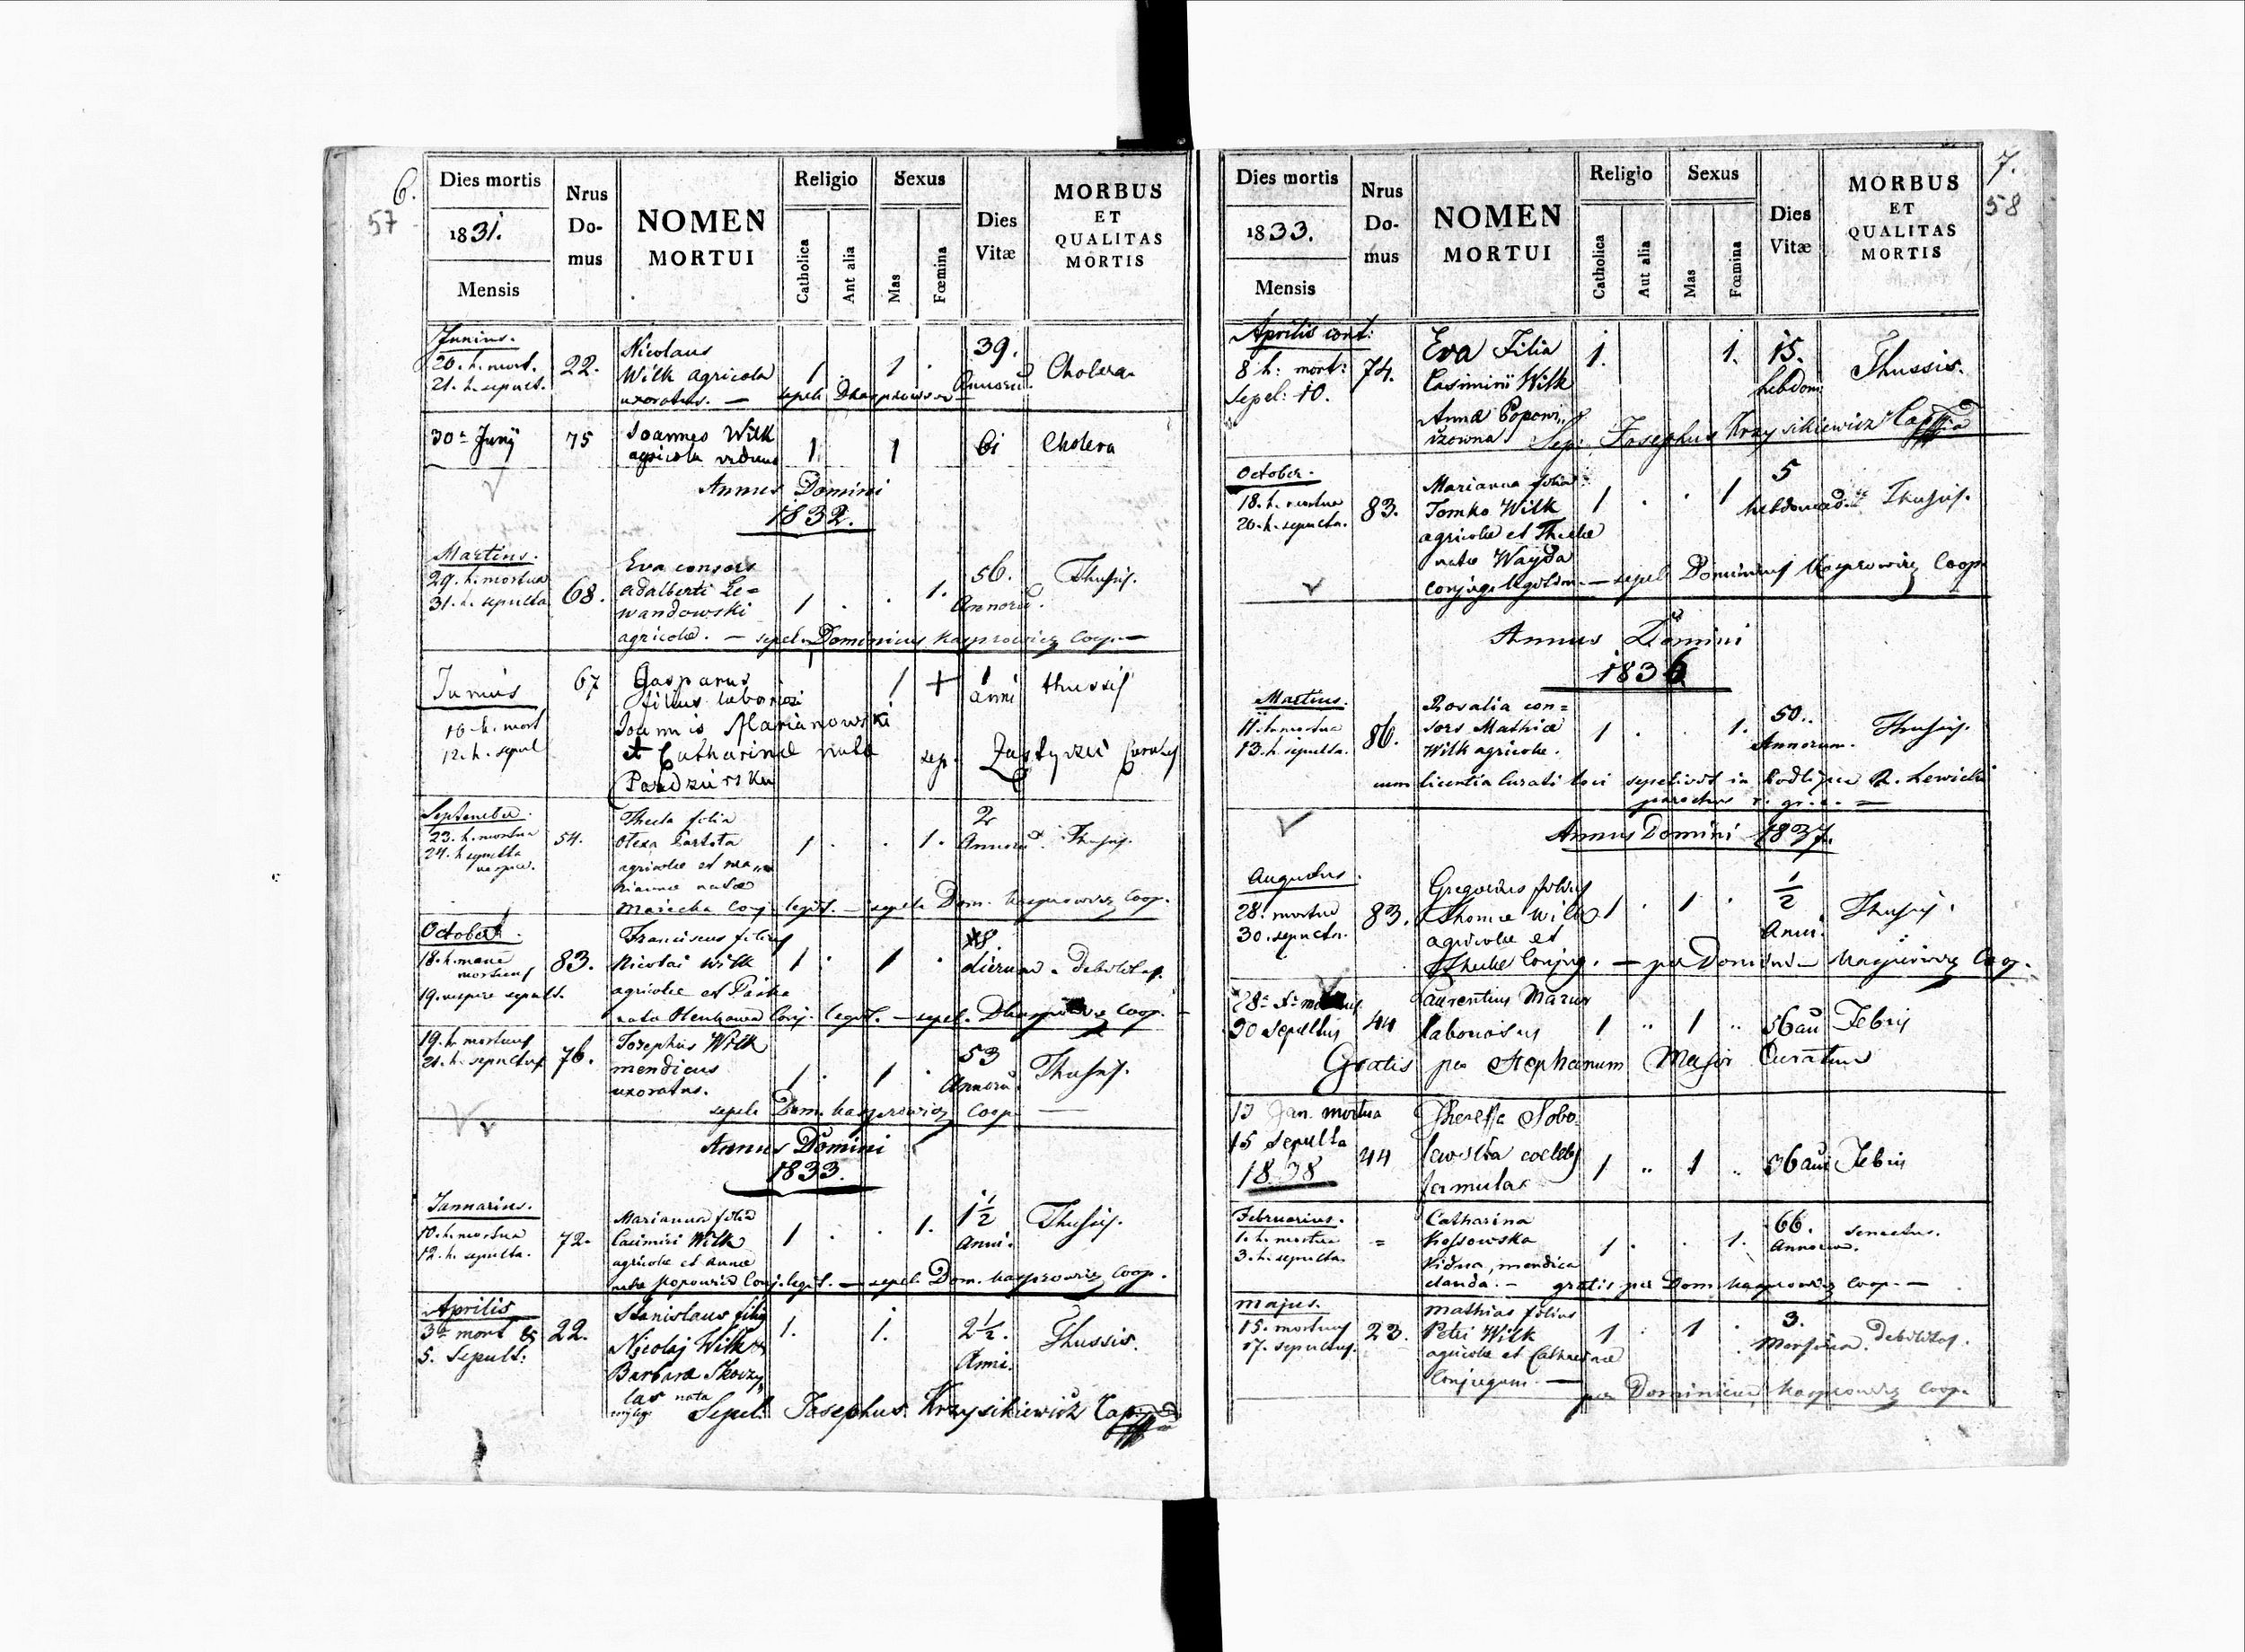 6.
57
Dies mortis
1831.
Mensis
Nrus
Do-
mus
NOMEN
MORTUI
Religio
Catholica
Aut alia
Sexus
Mas
Fœmina
Dies
Vitæ
MORBUS
ET
QUALITAS
MORTIS
Junius.
20. h. mort. 22. Nicolaus 39.
21. h. sepult. Wilk agricola 1 . 1 . Annorū. Cholera
uxoratus. — sepel.
30a Junÿ 75 Joannes Wilk 1. 1 61 Cholera
agricola viduus
Annus Domini
1832.
Martius.
29. h. mortua 68. Eva consors 56. Thussis.
31. h. sepulta adalberti Le=
wandowski 1 . . 1. Annorū.
agricolae. — sepel. Dominicus Kasprowicz Coop. —
Junius 67 Gasparus 1 + 1 anni thussis
filius laboriosi
10 h. mort Joannis Marianowski
12. h. sepul et Catharinæ nata sep. Curatus
September.
23. h. mortua 54. Thecla filia 2
24. h sepulta agricolae et ma„ 1 . . 1. Annorū. Thussis.
vespere. riannæ natæ
conj. legit. — sepel. Dom. Kasprowicz Coop.
October.
18. h. mane 83. Franciscus filius 8.
mortuus Nicolai Wilk 1 . 1 . dierum. debilitas.
19. vespere sepult. agricolae et
nata conj. legit. — sepel. Coop.
19. h. mortuus 76. Josephus Wilk 53
21. h. sepultus mendicus 1 . 1 . Annorū. Thussis.
uxoratus.
sepel. Dom. Kasprowicz Coop. —
Annus Domini
1833.
Januarius.
10. h. mortua 72. Marianna filia 1½ Thussis.
12. h. sepulta. Casimiri Wilk 1 . . 1. Anni.
agricolae et Annæ
natæ Popowicz Conj. legit. — sepel. Dom. Kasprowicz Coop.
Aprilis
3 mort et 22. Stanislaus filius 1. 1. 2½. Thussis.
5. Sepult: Nicolaj Wilk Anni.
Barbara Skorzy„
las nata
Sepel: Josephus Krzysikiewicz
7.
58
Dies mortis
1833.
Mensis
Nrus
Do-
mus
NOMEN
MORTUI
Religio
Catholica
Aut alia
Sexus
Mas
Fœmina
Dies
Vitæ
MORBUS
ET
QUALITAS
MORTIS
Aprilis cont:
8 h: mort: 74. Eva Filia 1. 1. 15. Thussis.
Sepel: 10. Casimirii Wilk hebdom:
Anna Popowi„
czowna Sep: Josephus Krzysikiewicz
October.
18. h. mortua 83. Marianna filia 5
20. h. sepulta. Tomko Wilk 1 . . 1 hebdomad. Thussis.
agricolae et Theclæ
natæ Wayda
conjug. — sepel. Dominicus Kasprowicz Coop.
Annus Domini
1836
Martius.
11. h. mortua 86. Rosalia con= 50.
13. h. sepulta. sors Mathiæ 1 . . 1. Annorum. Thussis.
Wilk agricolae.
cum licentia Curati loci sepelivit in R. Lewicki
parochus r. gr. c. =
Annus Domini 1837.
Augustus.
28. mortuus 83. Gregorius filius 1 . 1 . ½ Thussis.
30. sepultus. Thomæ Wilk Anni.
agricolae et
Theclæ Conjug. — per Dominic. Kasprowicz Coop.
28a
30 sepultus 44 Laurentius Mazur 1 „ 1 „ 56 an Febris
laboriosus
Gratis per Stephanum Major Curatum
13 Jan. mortua Theressa Sobo
15 sepulta 44 lewska coelebs 1 „ 1 „ 36 an Febris
1838 famula
Februarius.
1. h. mortua = Catharina 66. senectus.
3. h. sepulta. Kossowska 1 . . 1. Annorum.
Vidua, mendica
clauda. — gratis per Dom. Kasprowicz Coop. —
Majus.
15. mortuus 23. Mathias filius 3.
17. sepultus. Petri Wilk 1 . 1 . Mensium. Debilitas.
agricolae et Catharinæ
Conjugum. —
per Dominicum Kasprowicz Coop.